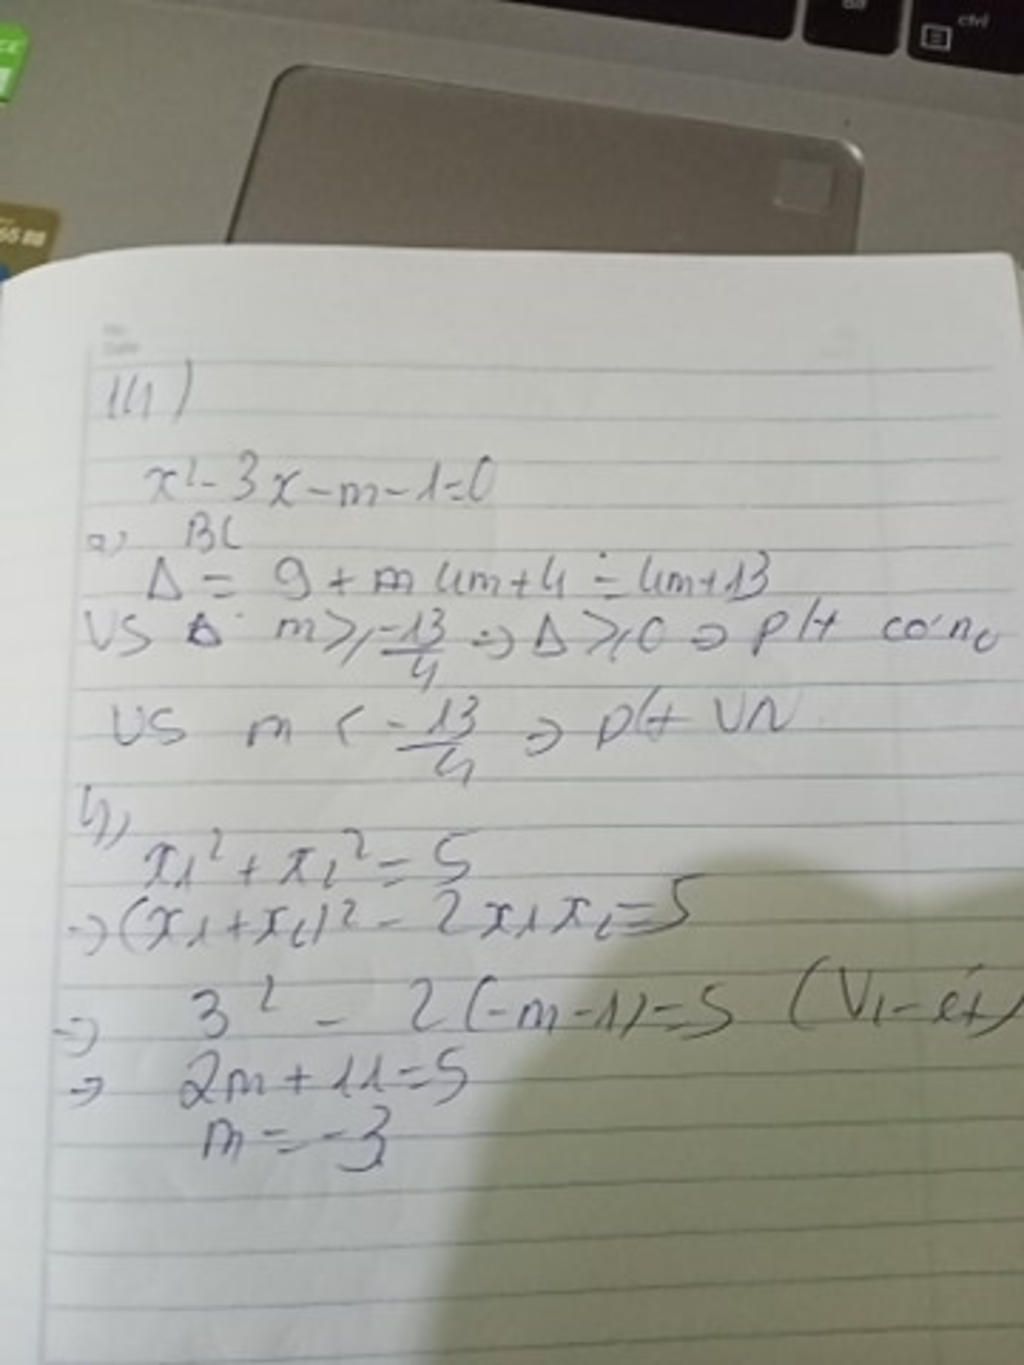 ctrl
65 88
No.
Date
14)
x² - 3x - m - 1 = 0
a, BL
Δ = 9 + m 4m + 4 = 4m + 13
VS Δ m ≥ -13/4 => Δ ≥ 0 => pt có no
VS m < -13/4 => pt VN
b,
x₁² + x₂² = 5
=> (x₁ + x₂)² - 2x₁x₂ = 5
=> 3² - 2(-m - 1) = 5 (Vi-ét)
=> 2m + 11 = 5
m = -3